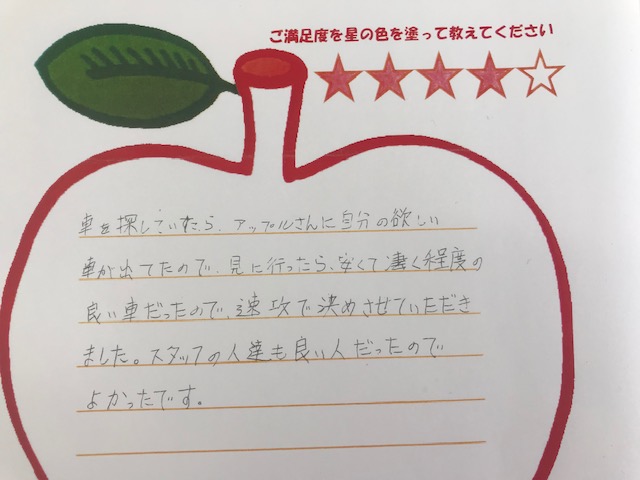 ご満足度を星の色を塗って教えてください
車を探していたら、アップルさんに自分の欲しい
車が出てたので、見に行ったら、安くて凄く程度の
良い車だったので、速攻で決めさせていただき
ました。スタッフの人達も良い人だったので
よかったです。